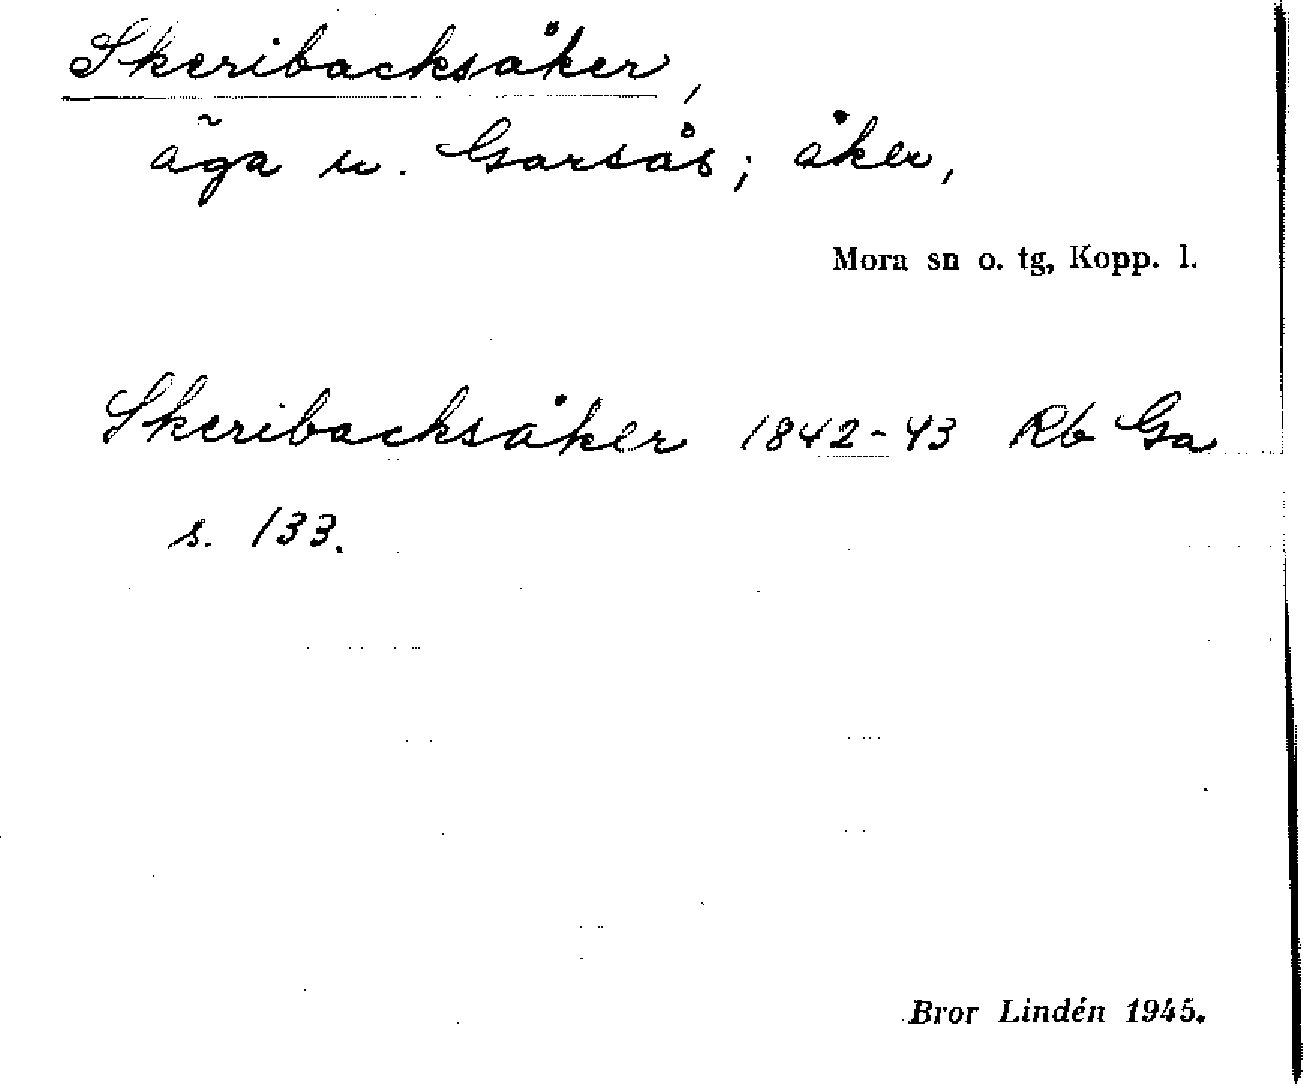 Skeribacksåker,
äga u. Garsås; åker,
Mora sn o. tg, Kopp. l.
Skeribacksåker 1842-43 Rb Ga
s. 133.
Bror Lindén 1945.